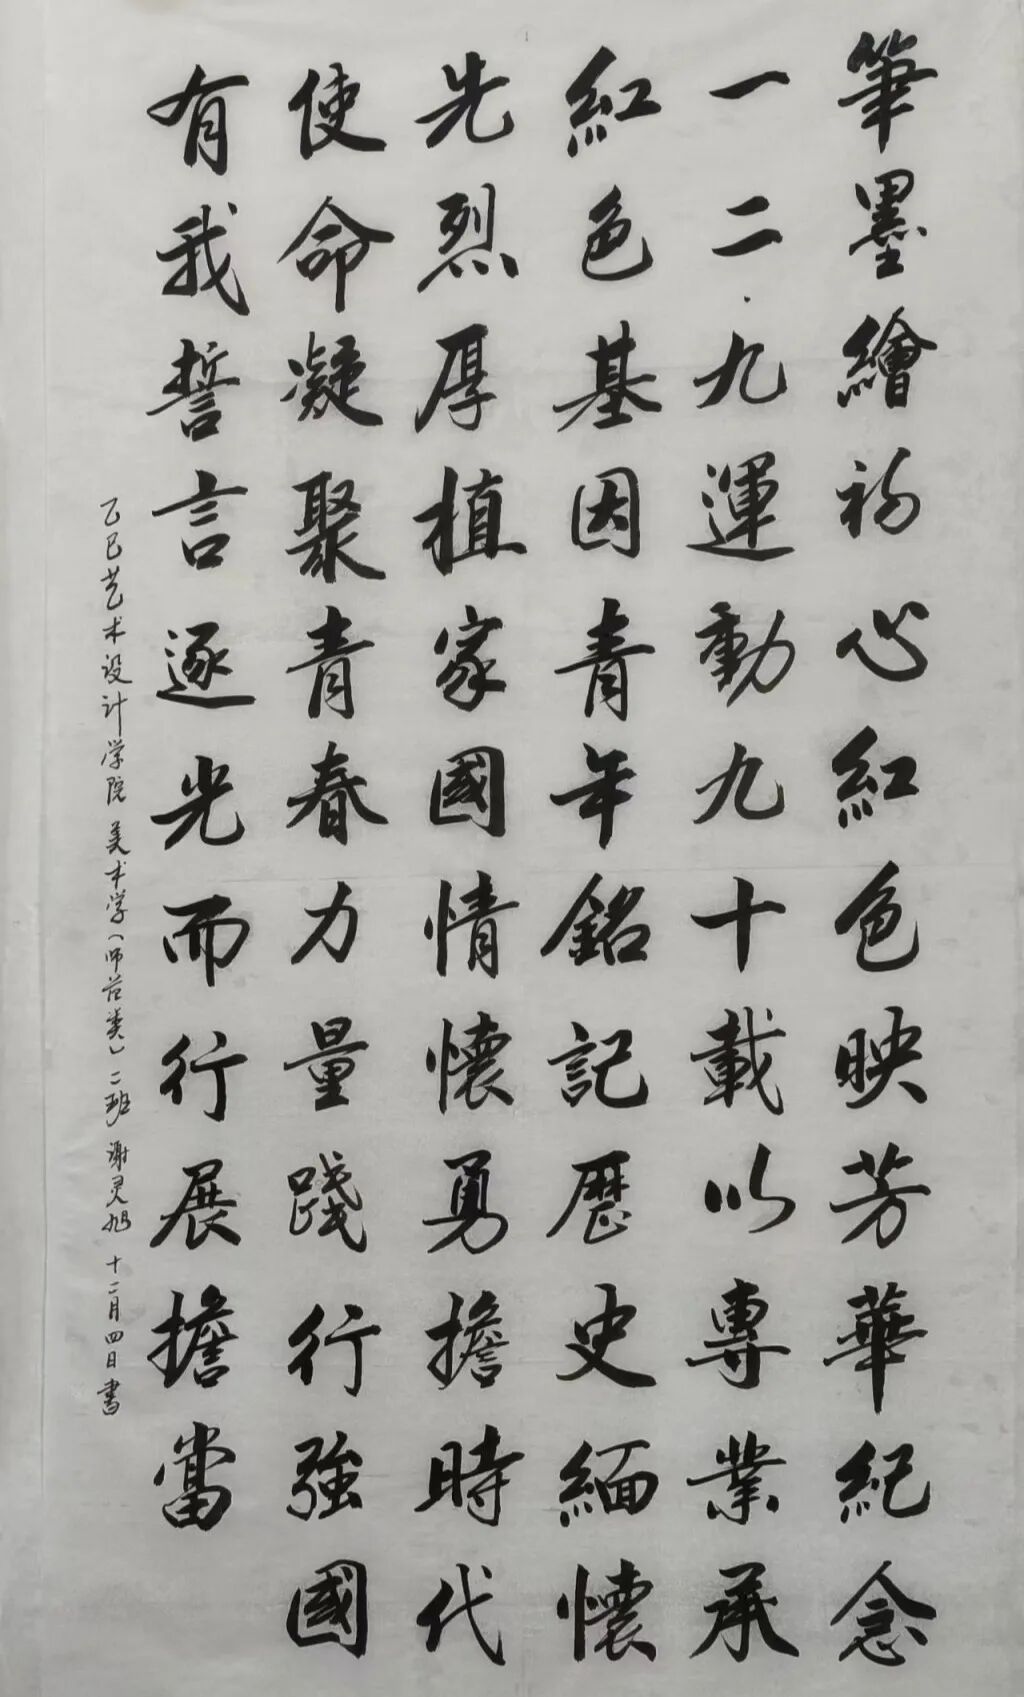 筆墨繪初心紅色映芳華紀念
一二·九運動九十載以專業承
紅色基因青年銘記歷史緬懷
先烈厚植家國情懷勇擔時代
使命凝聚青春力量踐行強國
有我誓言逐光而行展擔當
乙巳艺术设计学院美术学(师范类)二班谢灵旭十二月四日書